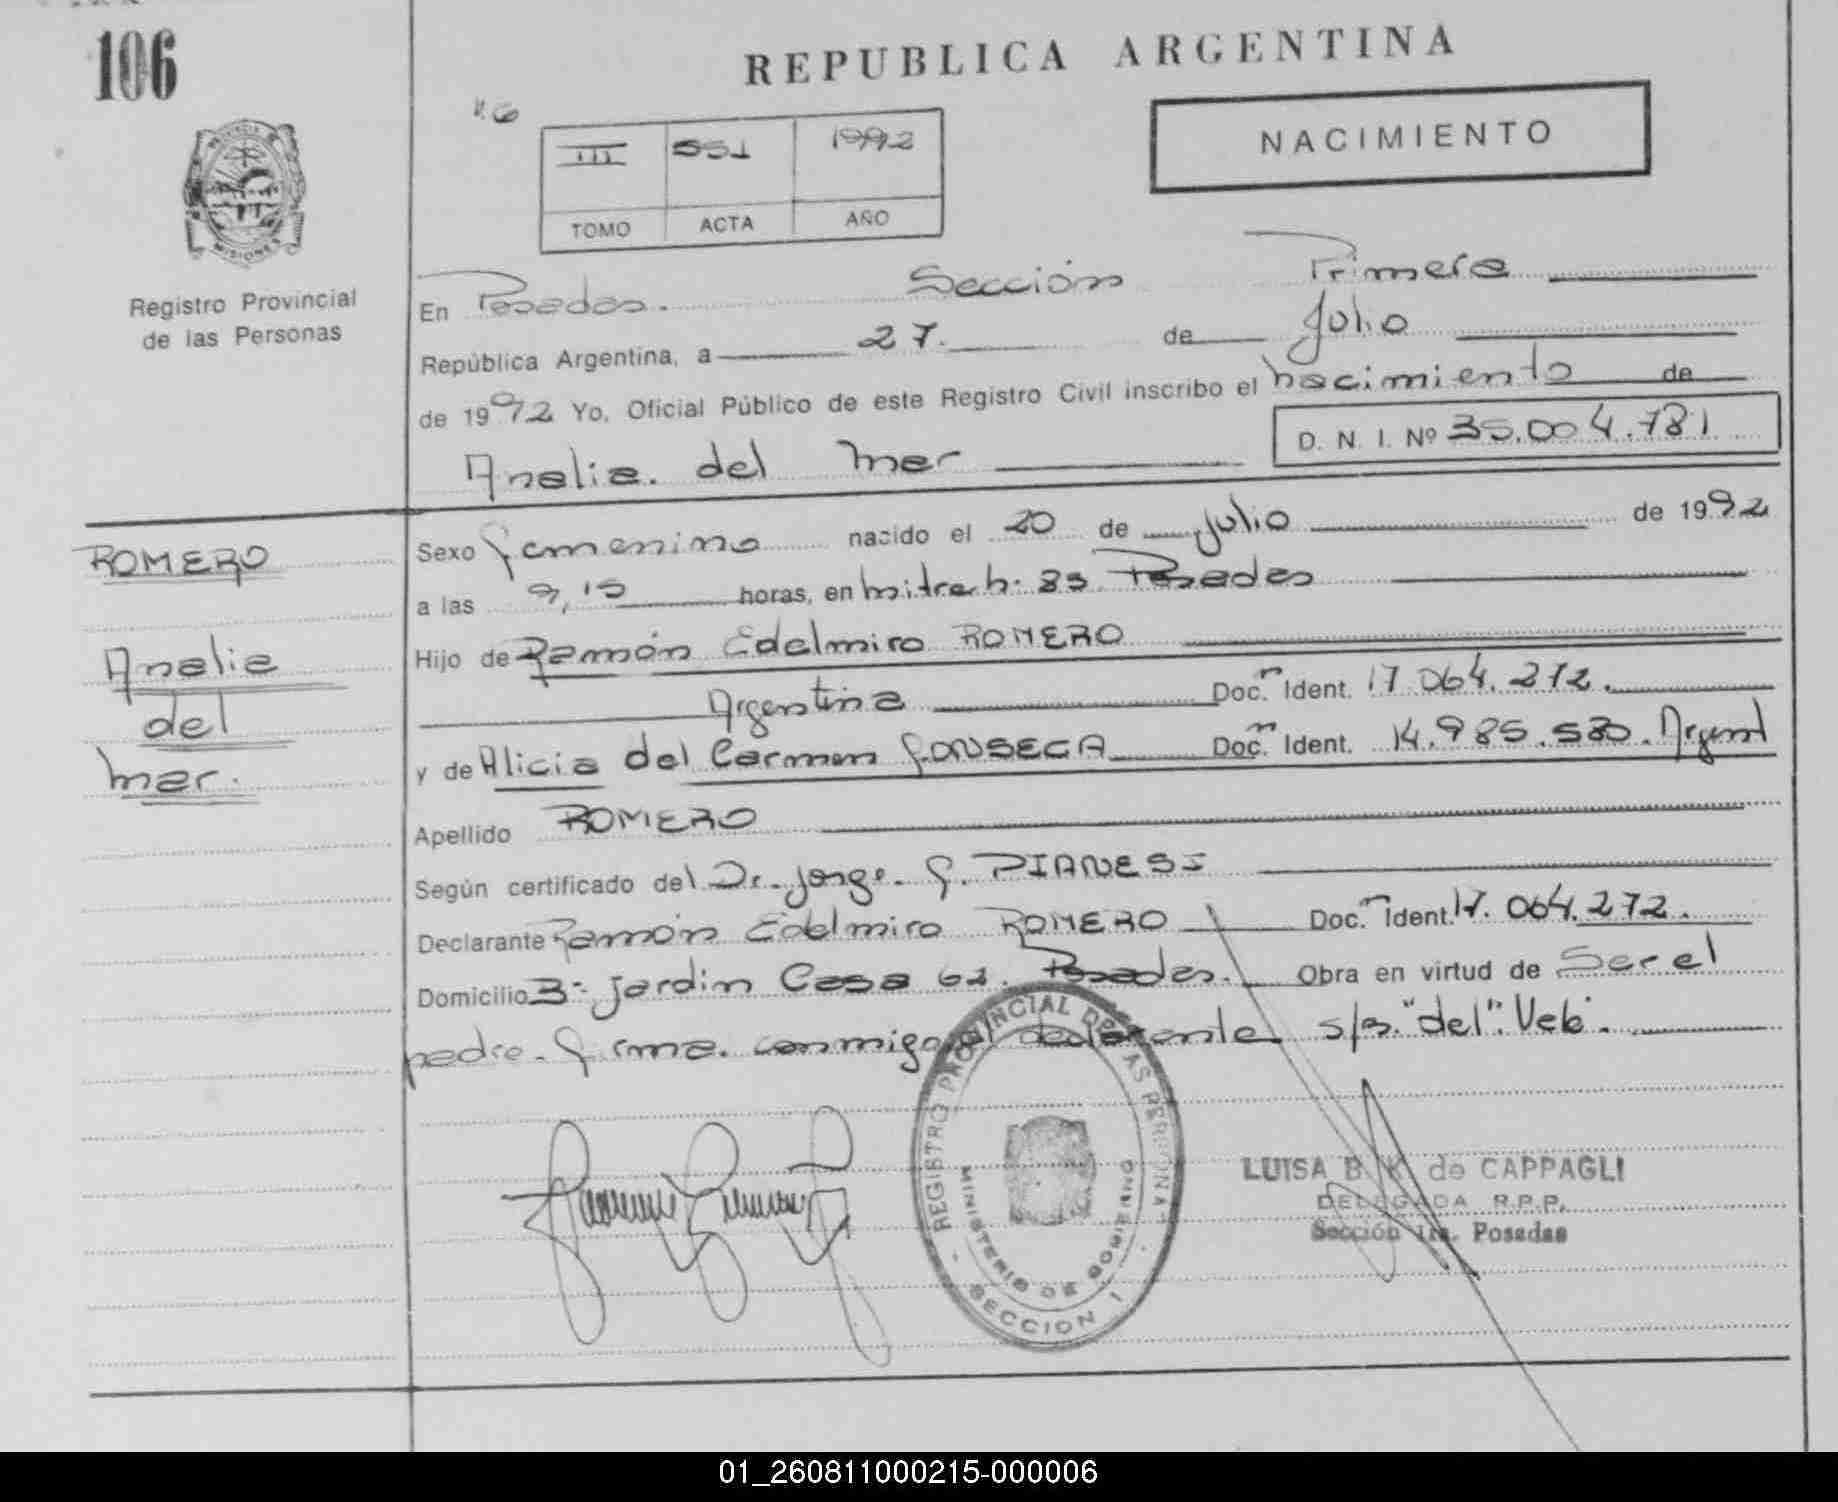 106
REPUBLICA ARGENTINA
PROVINCIA DE MISIONES
Registro Provincial
de las Personas
III 551 1992
TOMO ACTA AÑO
NACIMIENTO
En Posadas. Sección Primera
República Argentina, a 27. de Julio
de 1992 Yo, Oficial Público de este Registro Civil inscribo el nacimiento de
D. N. I. Nº 35.004.781
Analia. del Mar
ROMERO
Analia
del
Mar.
Sexo femenino nacido el 20 de Julio de 1992
a las 9,15 horas, en Mitre h. 85 Posadas
Hijo de Ramón Edelmiro ROMERO
Argentina Doc. Ident. 17.064.272.
y de Alicia del Carmen FONSECA Doc. Ident. 14.985.580. Argent
Apellido ROMERO
Según certificado del Dr. Jorge. G. PIANESI
Declarante Ramón Edelmiro ROMERO Doc. Ident. 17.064.272.
Domicilio 3- Jardin Casa 62. Posadas. Obra en virtud de Ser el
padre. Firma. conmigo el declarante s/r. "del". Vale.
REGISTRO PROVINCIAL DE LAS PERSONAS
MINISTERIO DE GOBIERNO
- SECCION I -
LUISA B. K. de CAPPAGLI
DELEGADA R.P.P.
Sección 1ra. Posadas
01_260811000215-000006